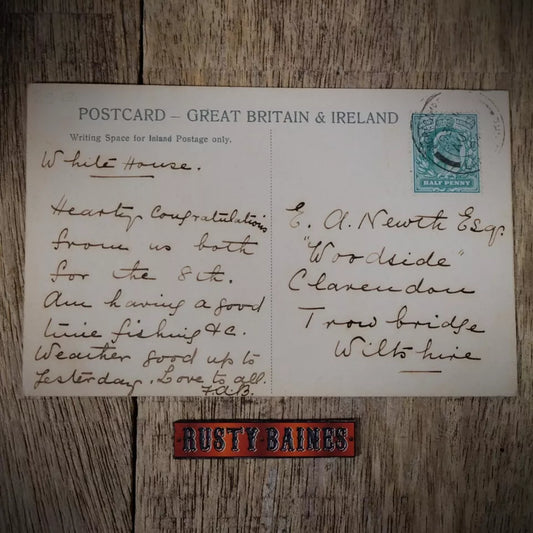 POSTCARD – GREAT BRITAIN & IRELAND
Writing Space for Inland Postage only.
HALF PENNY
White House.
Hearty Congratulations
from us both
for the 8th.
Am having a good
time fishing &c.
Weather good up to
yesterday. Love to all.
F.A.B.
E. A. Newth Esqr
"Woodside"
Clarendon
Trowbridge
Wiltshire
RUSTY BAINES